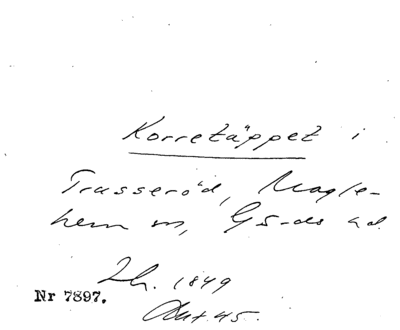 Korretäppet i
Trasseröd, Magle-
hem sn, Gs-ds hd.
Lh. 1849
Nr 7897.
Akt 45.